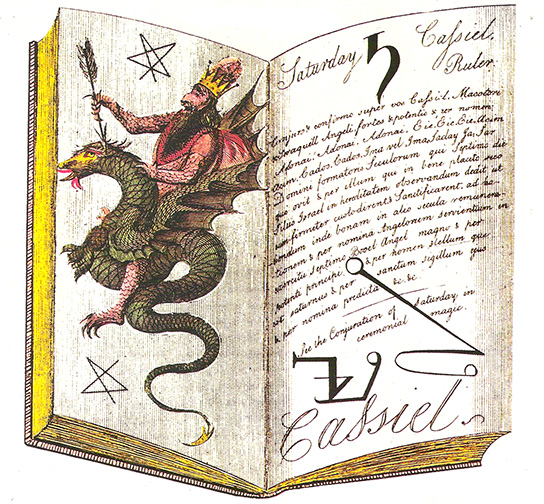 Saturday ♄ Cassiel.
Ruler.
Conjuro & confirmo super vos Cassiel. Macotore
& Seraquiel Angeli fortes & potentis & per nomen;
Adonai. Adonai. Adonai. Eie. Eie. Eie. Acim
Acim. Cados. Cados. Ima vel Ima Saday Ja. Sar
Domini formatoris Seculorum qui Septimo die
quo vit & per illum qui in bene placito suo
filus Israel in hereditatem observandum dedit ut
firmiter custodirent & Sanctificarent, ad
inde bonam in alio secula remunera-
tionem & per nomina Angelorum servientium in
exercitu Septimo Booel Angel magno &
potenti principe & per nomen stellum quæ
est saturnus & per sanctum sigillum quo
& per nomina predicta &c. &c.
See the Conjuration of Saturday, in
ceremonial magic.
Cassiel.